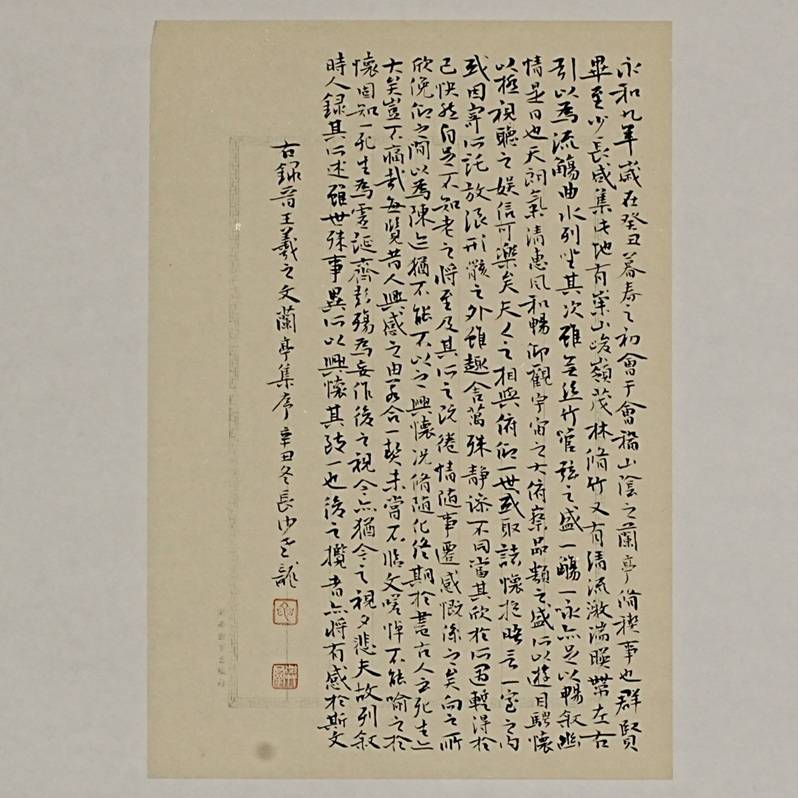 永和九年歲在癸丑暮春之初會于會稽山陰之蘭亭脩稧事也群賢
畢至少長咸集此地有崇山峻嶺茂林脩竹又有清流激湍暎帶左右
引以為流觴曲水列坐其次雖無絲竹管弦之盛一觴一詠亦足以暢叙幽
情是日也天朗氣清惠風和暢仰觀宇宙之大俯察品類之盛所以遊目騁懷
以極視聽之娛信可樂矣夫人之相與俯仰一世或取諸懷抱晤言一室之內
或因寄所託放浪形骸之外雖趣舍萬殊靜躁不同當其欣於所遇暫得於
己快然自足不知老之將至及其所之既倦情隨事遷感慨係之矣向之所
欣俛仰之間以為陳迹猶不能不以之興懷況脩隨化終期於盡古人云死生亦
大矣豈不痛哉每覽昔人興感之由若合一契未嘗不臨文嗟悼不能喻之於
懷固知一死生為虛誕齊彭殤為妄作後之視今亦猶今之視夕悲夫故列叙
時人錄其所述雖世殊事異所以興懷其致一也後之攬者亦將有感於斯文
右録晉王羲之文蘭亭集序辛丑冬長沙龍